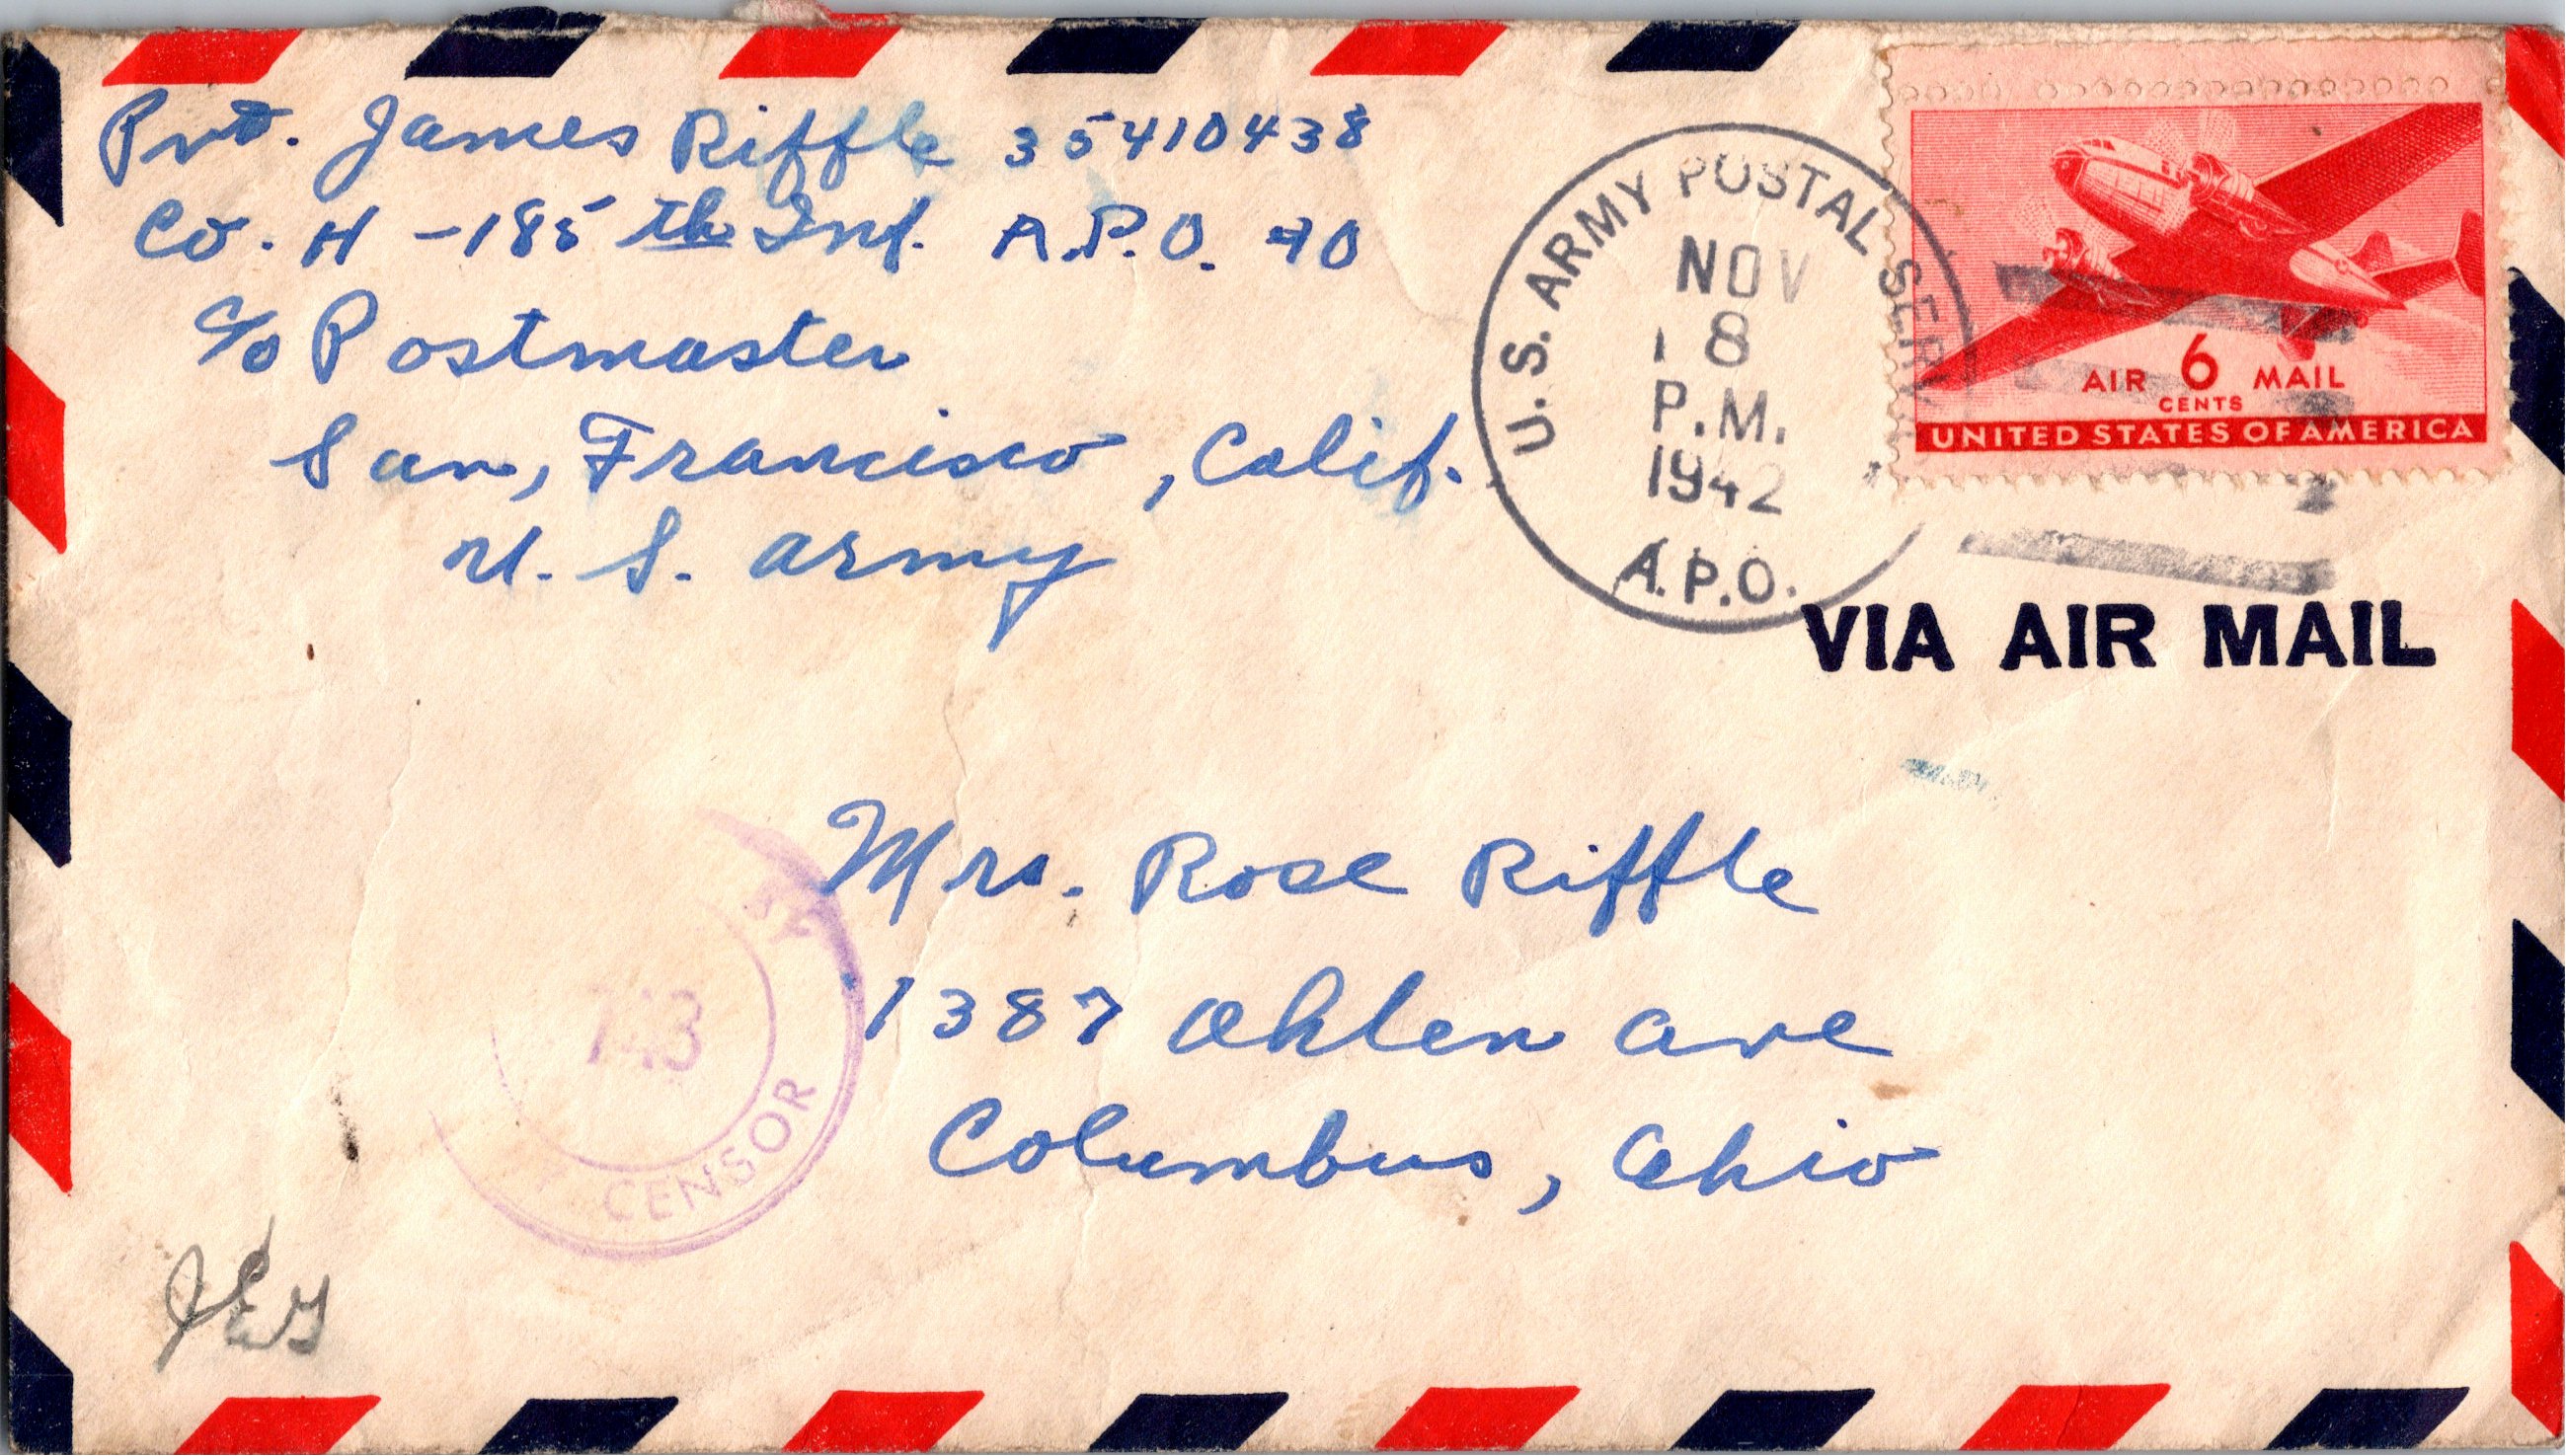 Pvt. James Riffle 35410438
Co. H - 185 th Inf. A.P.O. 40
c/o Postmaster
San, Francisco, Calif.
U. S. Army
U.S. ARMY POSTAL SERV
NOV
18
P.M.
1942
A.P.O.
AIR 6 MAIL
CENTS
UNITED STATES OF AMERICA
VIA AIR MAIL
Mrs. Rose Riffle
1387 Ohlen Ave
Columbus, Ohio
CENSOR